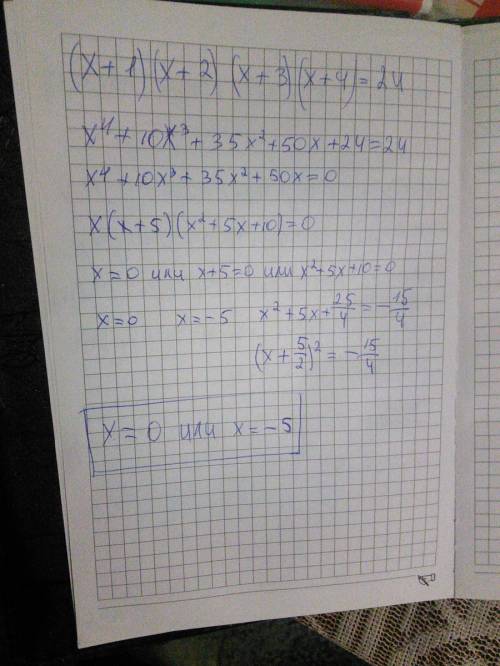 (x+1)(x+2) (x+3)(x+4)=24
x⁴+10x³+35x²+50x+24=24
x⁴+10x³+35x²+50x=0
x(x+5)(x²+5x+10)=0
x=0 или x+5=0 или x²+5x+10=0
x=0 x=-5 x²+5x+25/4=-15/4
(x+5/2)²=-15/4
x=0 или x=-5